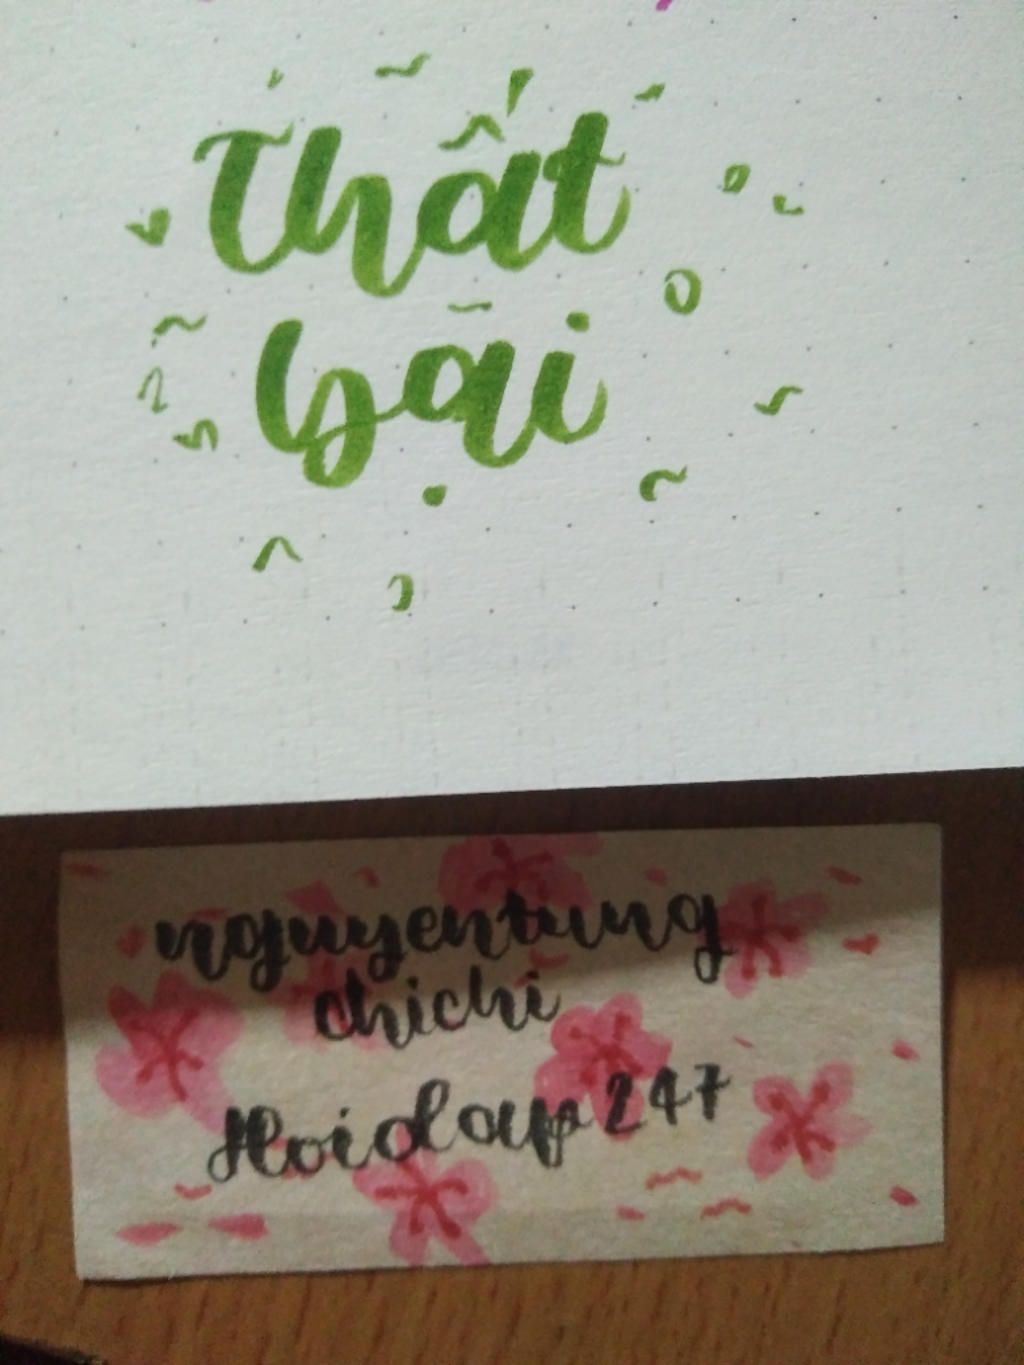 thất
bại
nguyentung
chichi
Hoidap247